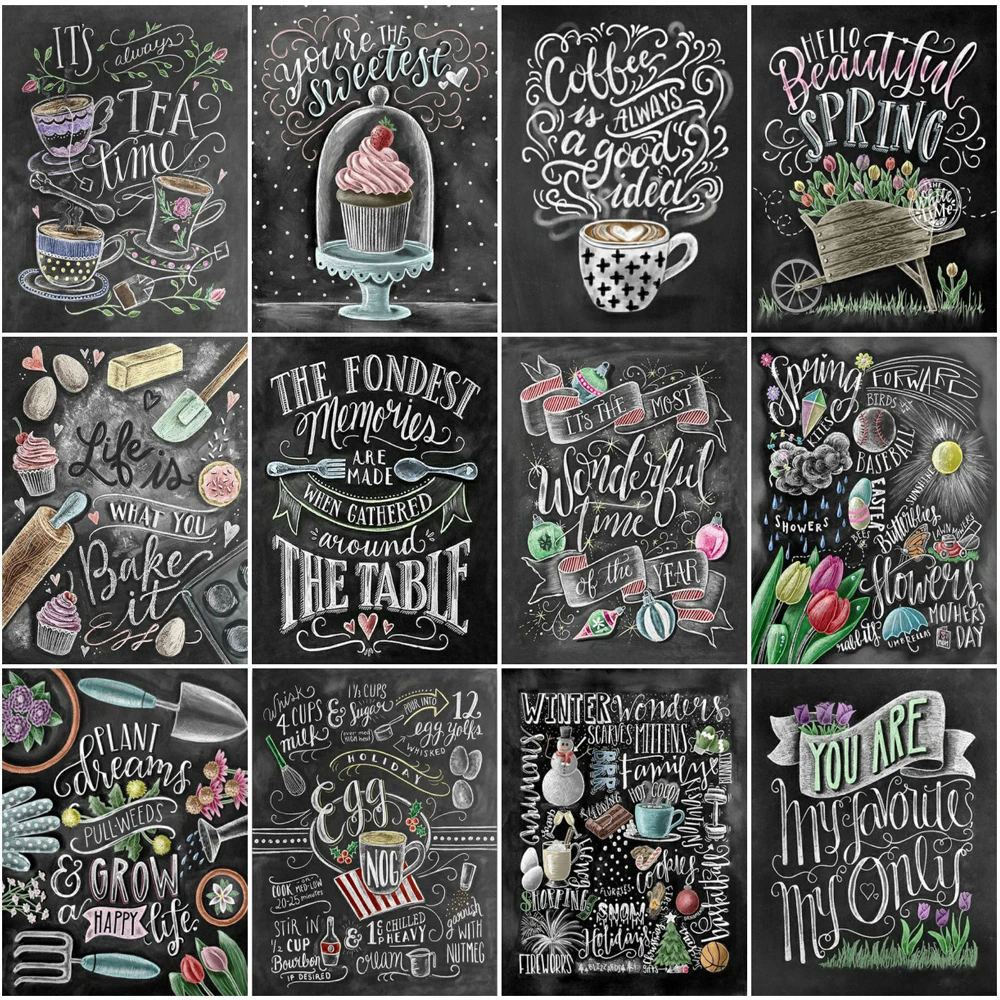 IT'S always
TEA
time
you're THE
sweetest
Coffee
is ALWAYS
a good
idea
HELLO
Beautiful
SPRING
THE
White Lime
Life is
WHAT YOU
Bake
it
THE FONDEST
Memories
ARE
MADE
WHEN GATHERED
around
THE TABLE
IT'S THE MOST
Wonderful
time
of the YEAR
Spring
FORWARD
KITES
BIRDS
BASEBALL
SUNSHINE
SHOWERS
EASTER
BEES
Butterflies
LAWN MOWERS
flowers
rabbits
UMBRELLAS
MOTHERS
DAY
PLANT
dreams
PULL WEEDS
& GROW
a HAPPY life.
Whisk
4 CUPS
milk
& 1 1/2 CUPS
Sugar
over med
HIGH heat
POUR INTO
12
egg yolks
WHISKED
HOLIDAY
Egg
NOG
COOK on MED-LOW
20-25 minutes
STIR IN
1/2 CUP
Bourbon
IF DESIRED
& 1 C CHILLED
HEAVY
cream
garnish
WITH
NUTMEG
WINTER Wonders
SCARVES MITTENS
BRRR
Family
HOT COCOA
Cookies
SHOPPING
FLURRIES
SNOW
Holidays
FIREWORKS
BLIZZARDS
GIFTS
Basketball
YOU ARE
My favorite
My Only